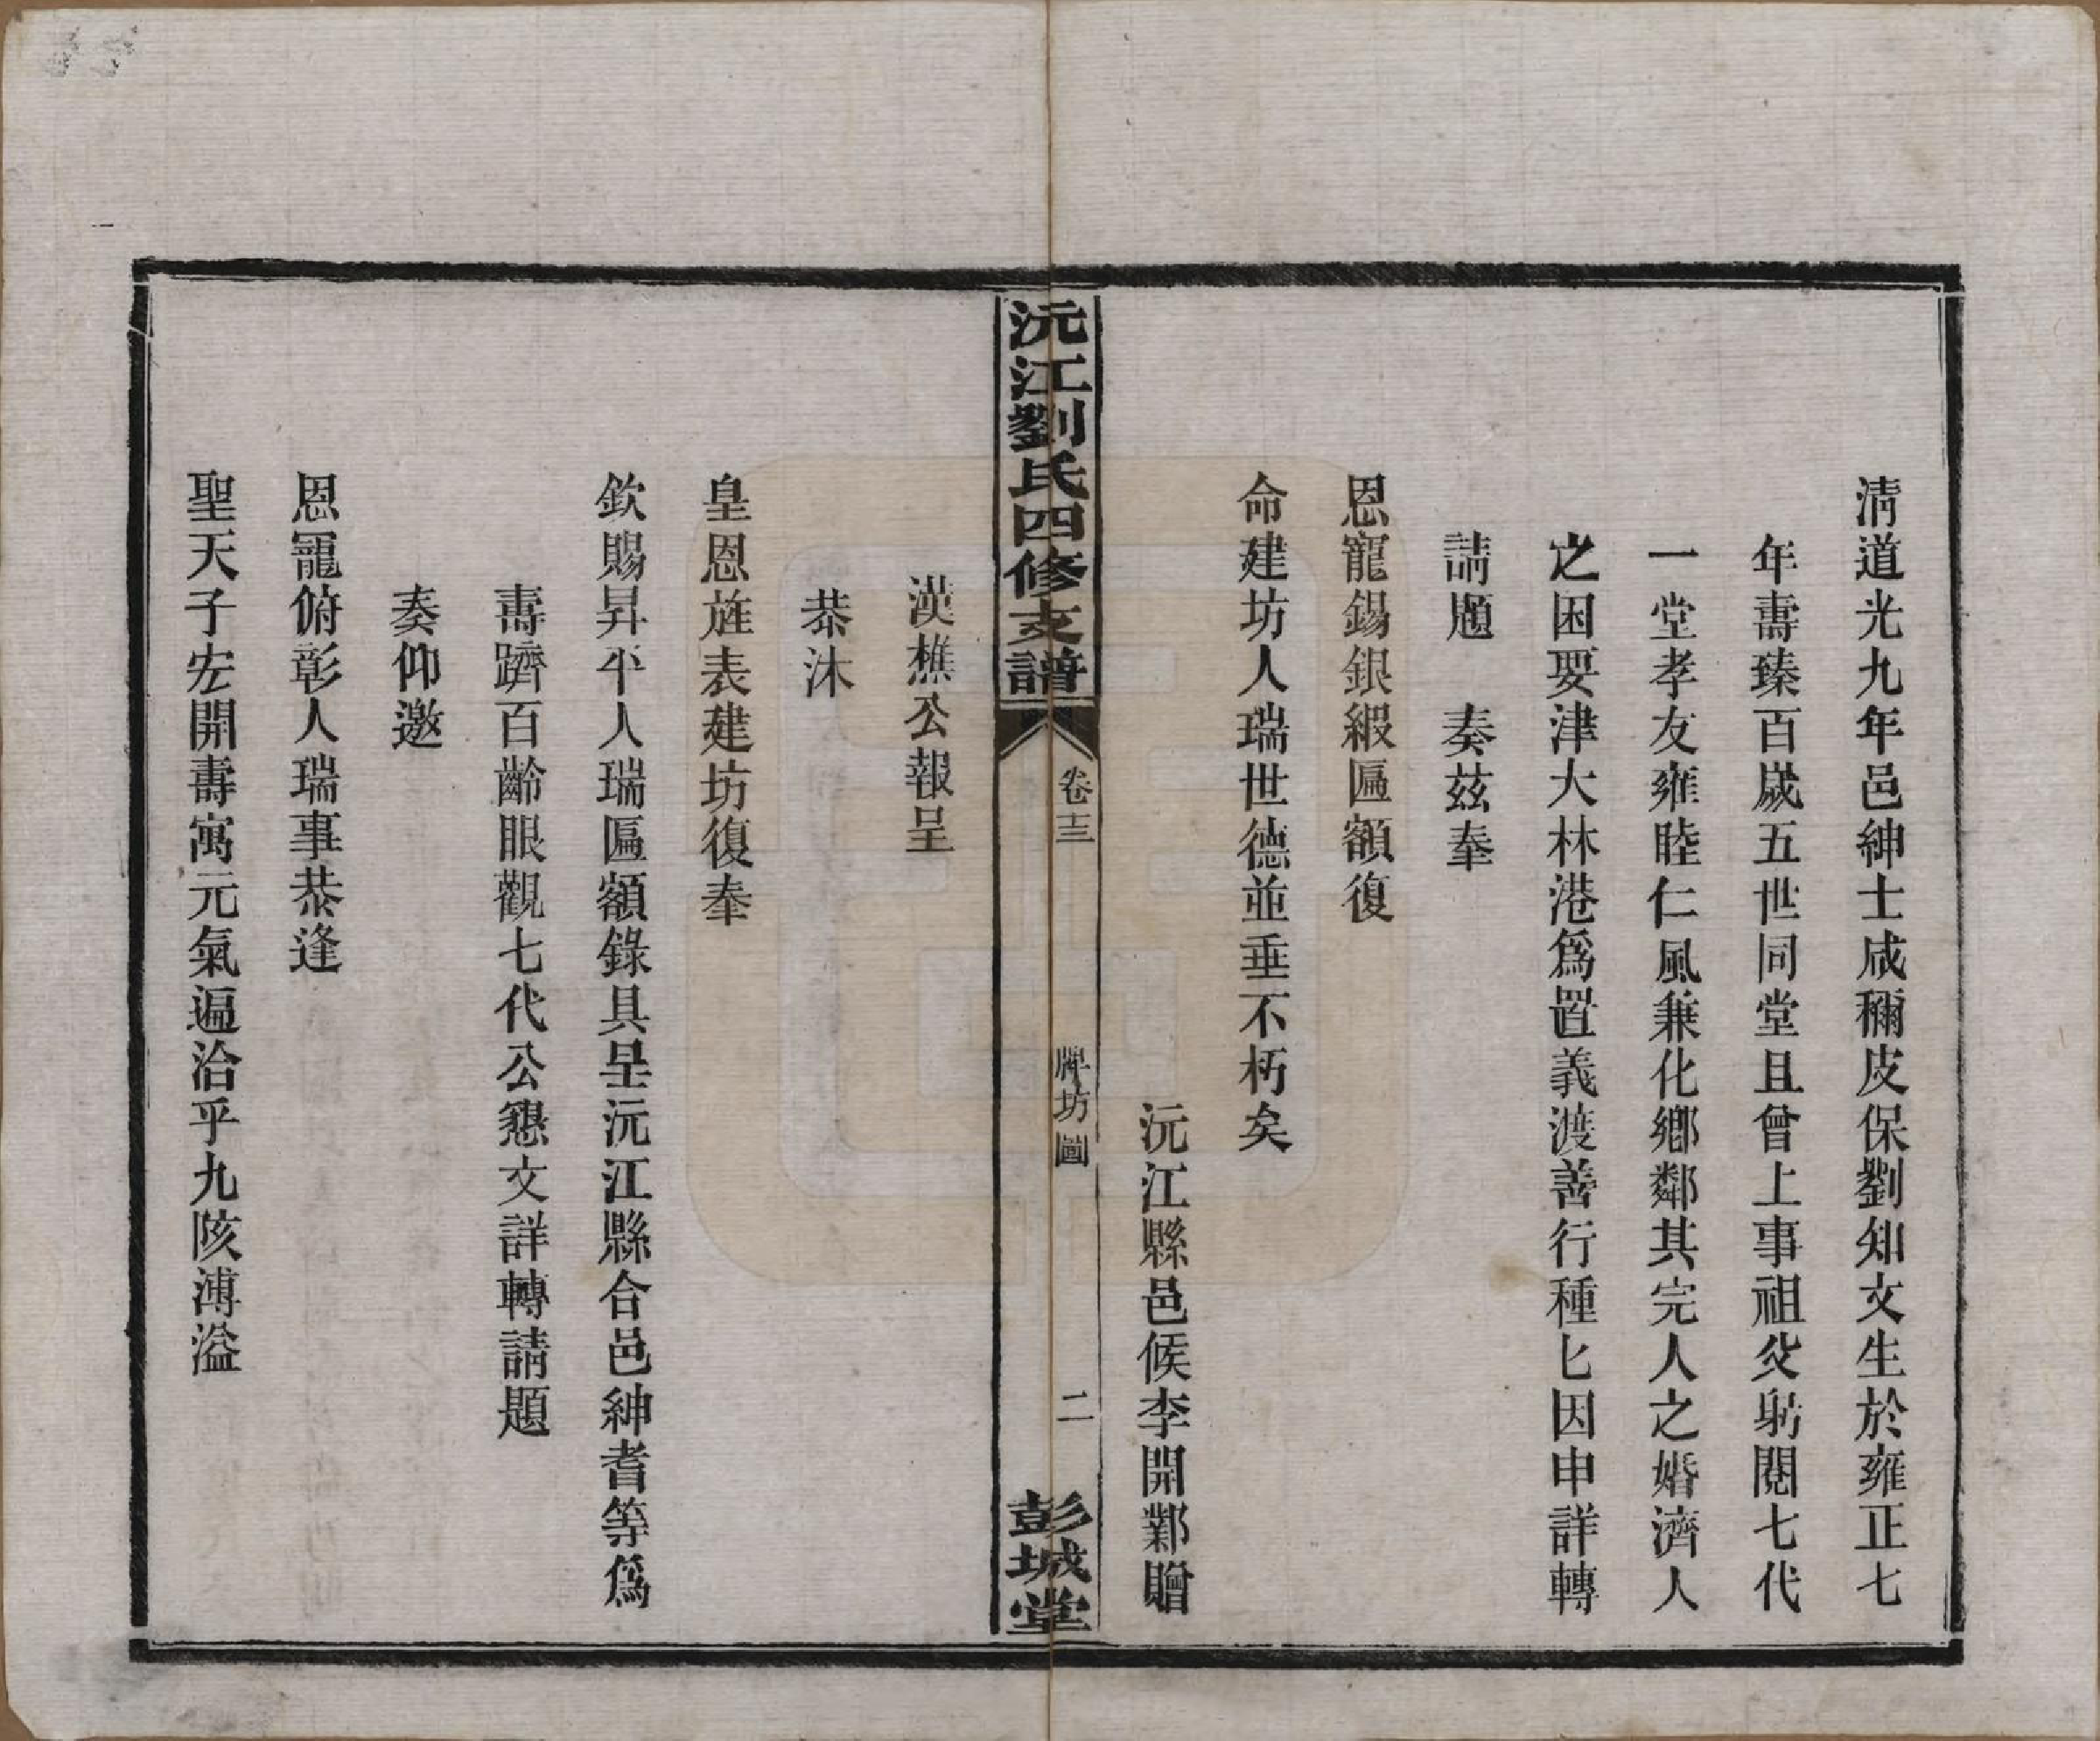 清道光九年邑紳士咸稱皮保劉知文生於雍正七
年壽臻百歲五世同堂且曾上事祖父躬閱七代
一堂孝友雍睦仁風兼化鄉鄰其完人之婚濟人
之困要津大林港爲置義渡善行種匕因申詳轉
請題　奏兹奉
恩寵錫銀緞匾額復
命建坊人瑞世德並垂不朽矣
沅江縣邑候李開鄴贈
沅江劉氏四修支譜
卷十三
牌坊圖
二
彭城堂
漢樵公報呈
恭沐
皇恩旌表建坊復奉
欽賜昇平人瑞匾額錄具呈沅江縣合邑紳耆等爲
壽躋百齡眼觀七代公懇文詳轉請題
奏仰邀
恩寵俯彰人瑞事恭逢
聖天子宏開壽寓元氣遍洽乎九陔溥溢